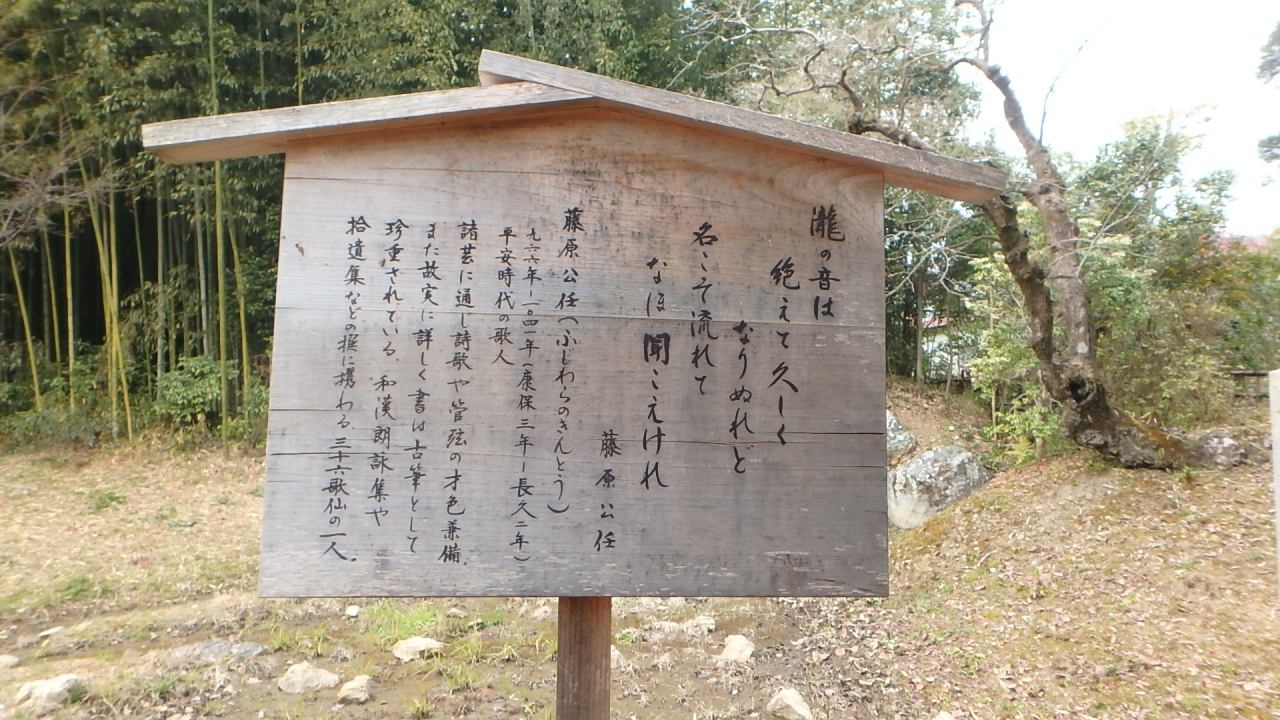 瀧の音は
絶えて久しく
なりぬれど
名こそ流れて
なほ聞こえけれ
藤原公任
藤原公任(ふじわらのきんとう)
九六六年ー一〇四一年(康保三年ー長久二年)
平安時代の歌人
諸芸に通し詩歌や管弦の才色兼備.
また故実に詳しく書は古筆として
珍重されている.和漢朗詠集や
拾遺集などの撰に携わる.三十六歌仙の一人.